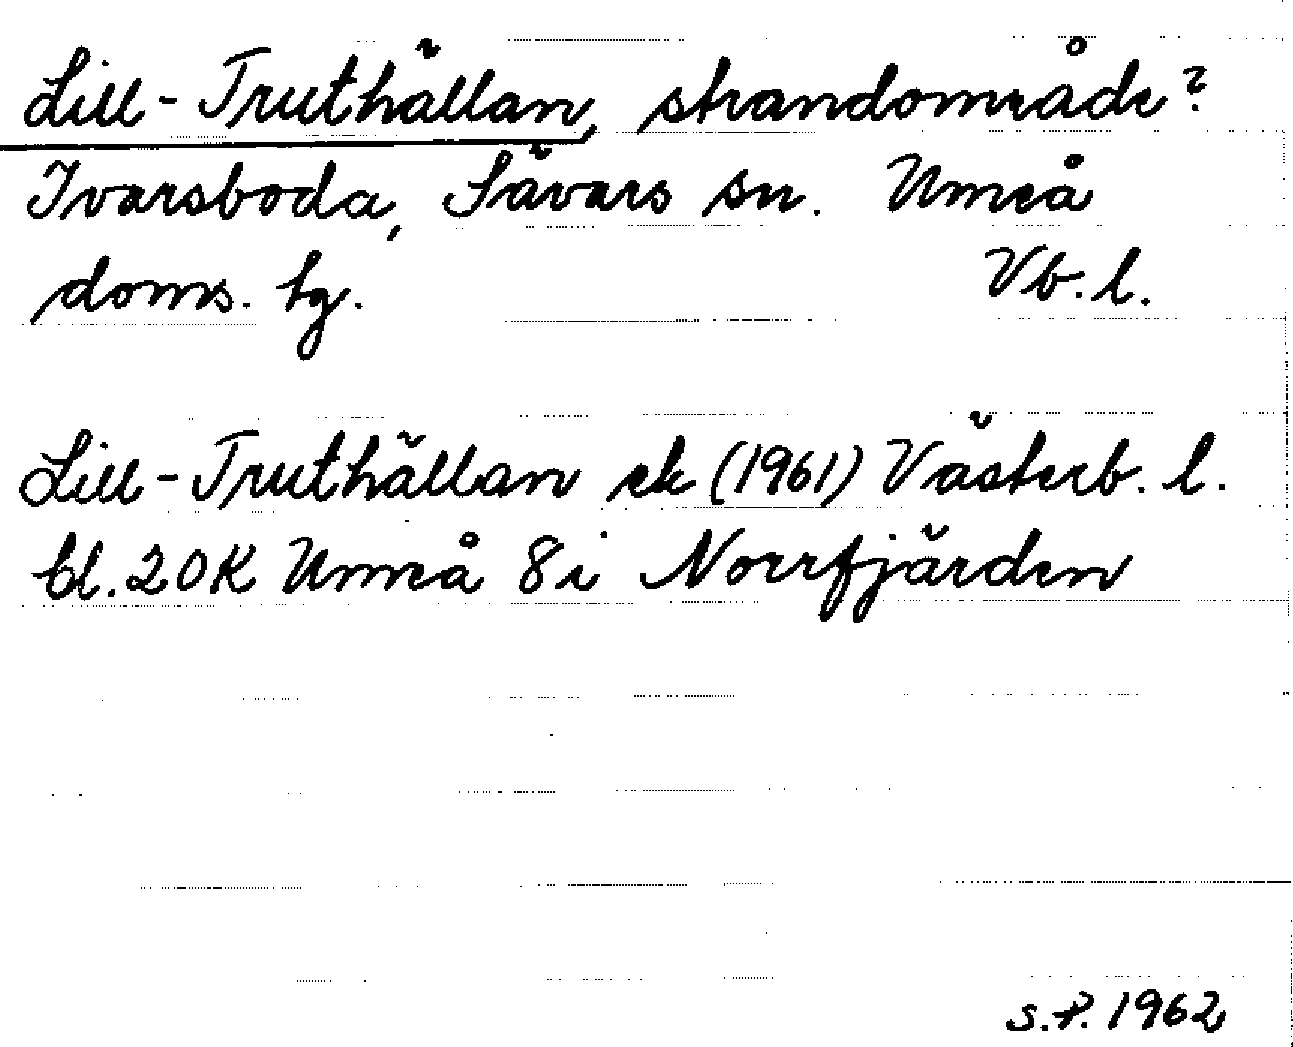 Lill-Truthällan, strandområde?
Ivarsboda, Sävars sn. Umeå
doms. tg. Vb. l.
Lill-Truthällan ek (1961) Västerb. l.
bl. 20K Umeå 8i Norrfjärden
S.P. 1962